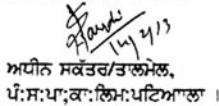 ਅਧੀਨ ਸਕੱਤਰ/ਤਾਲਮੇਲ,
ਪੰ:ਸ:ਪਾ;ਕਾ:ਲਿਮ:ਪਟਿਆਾਲਾ ।